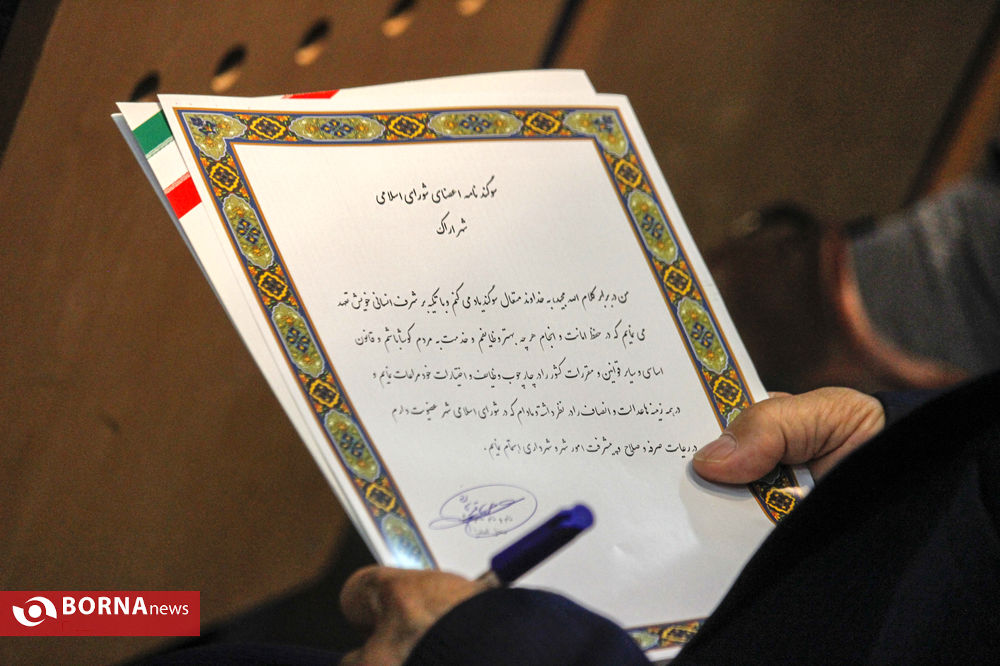 سوگند نامه اعضای شورای اسلامی
شهر اراک
من در برابر کلام الله مجید، به خداوند متعال سوگند یاد می کنم و با تکیه بر شرف انسانی خویش تعهد
می نمایم که در حفظ امانت و انجام هر چه بهتر وظایفم و خدمت به مردم کوشا باشم و قانون
اساسی و سایر قوانین و مقررات کشور را در چارچوب وظایف و اختیارات خود مراعات نمایم و
در همه زمینه ها عدالت و انصاف را در نظر داشته و مادام که در شورای اسلامی شهر عضویت دارم
در رعایت صرفه و صلاح و پیشرفت امور شهر و شهرداری اهتمام نمایم.
BORNAnews